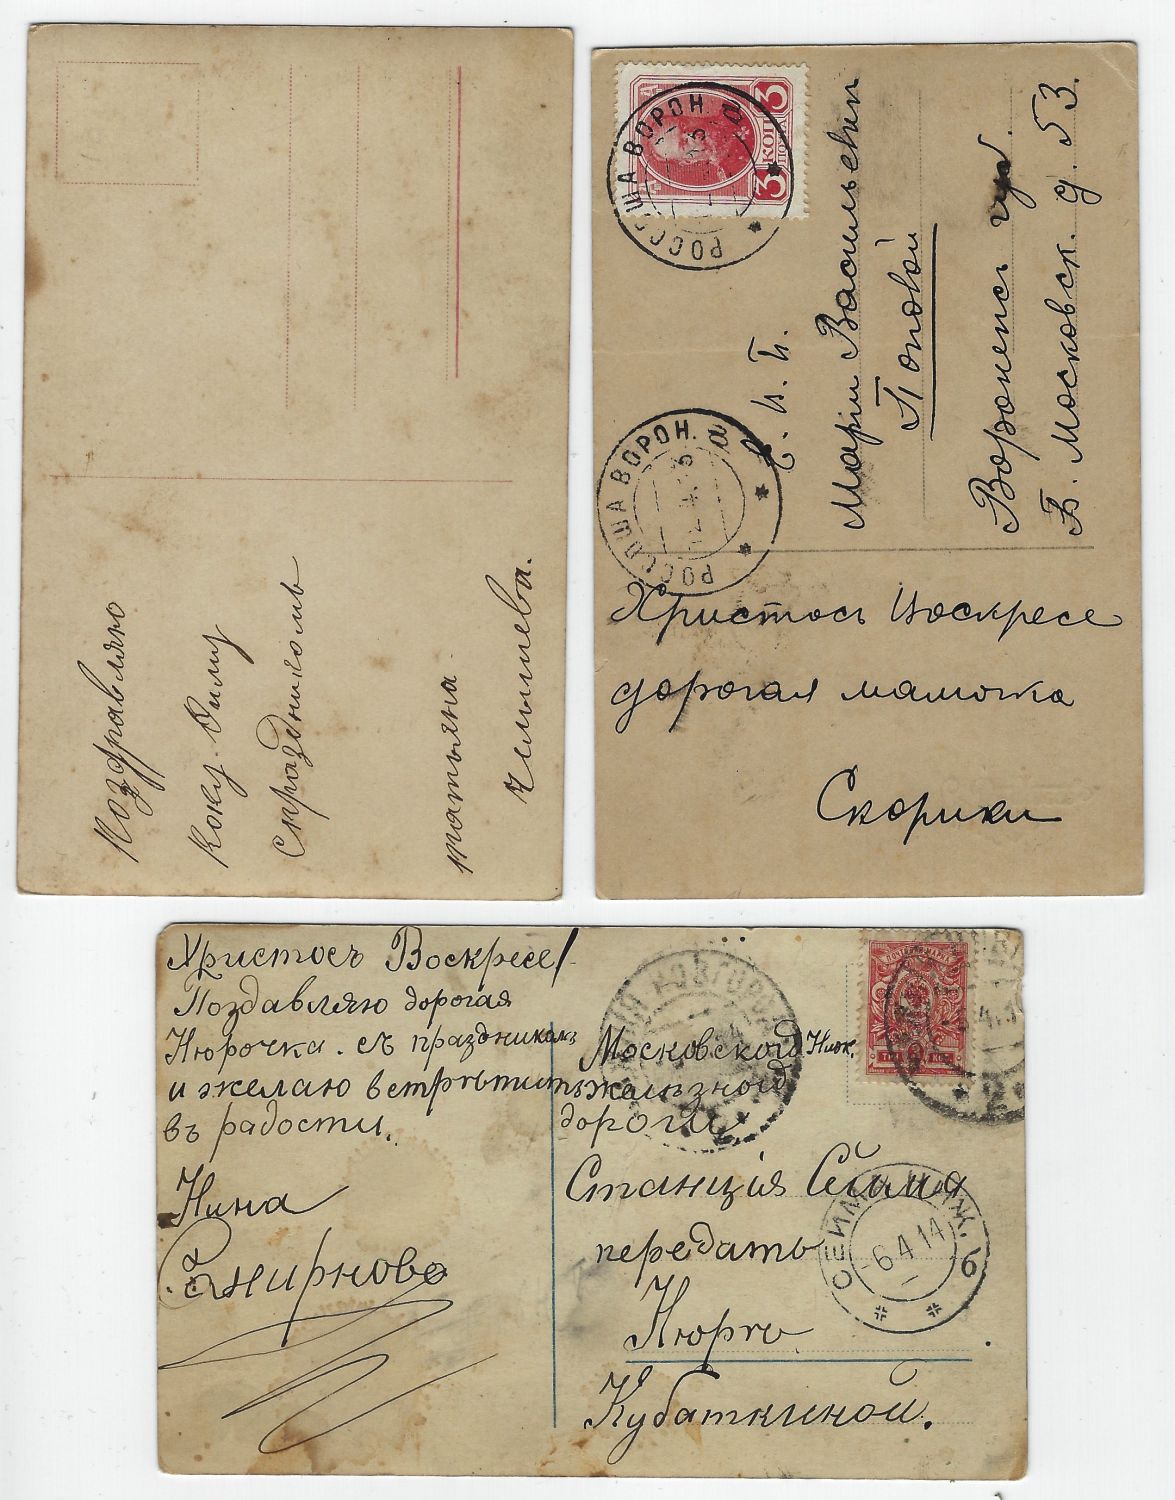 Поздравляю
Коку Риму
с праздникомъ
татьяна
Челышева.
РОССОША ВОРОН. а
3 КОП
3
Е. И. В.
Маріи Васильевни
Поповой
Воронежъ
Б. Московск. д. 53.
РОССОША ВОРОН. а
Христосъ Воскресе
дорогая мамочка
Скорики
Христосъ Воскресе!
Поздавляю дорогая
Нюрочка. съ праздникомъ
и желаю встретить
въ радости.
Нина
Смирнова
Московской Ниж.
железной
дороги
Станція Сейма
передать
Нюрѣ
Кубаткиной.
СЕЙМА НИЖ. б
6 4 14